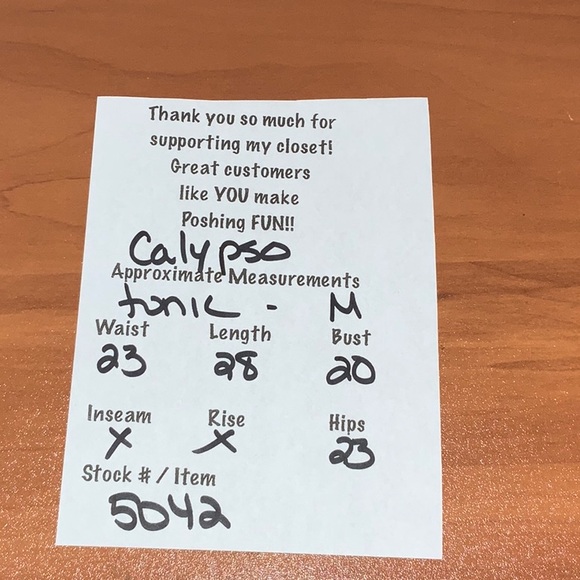 Thank you so much for
supporting my closet!
Great customers
like YOU make
Poshing FUN!!
Calypso
Approximate Measurements
tunic - M
Waist Length Bust
23 28 20
Inseam Rise Hips
X X 23
Stock # / Item
5042